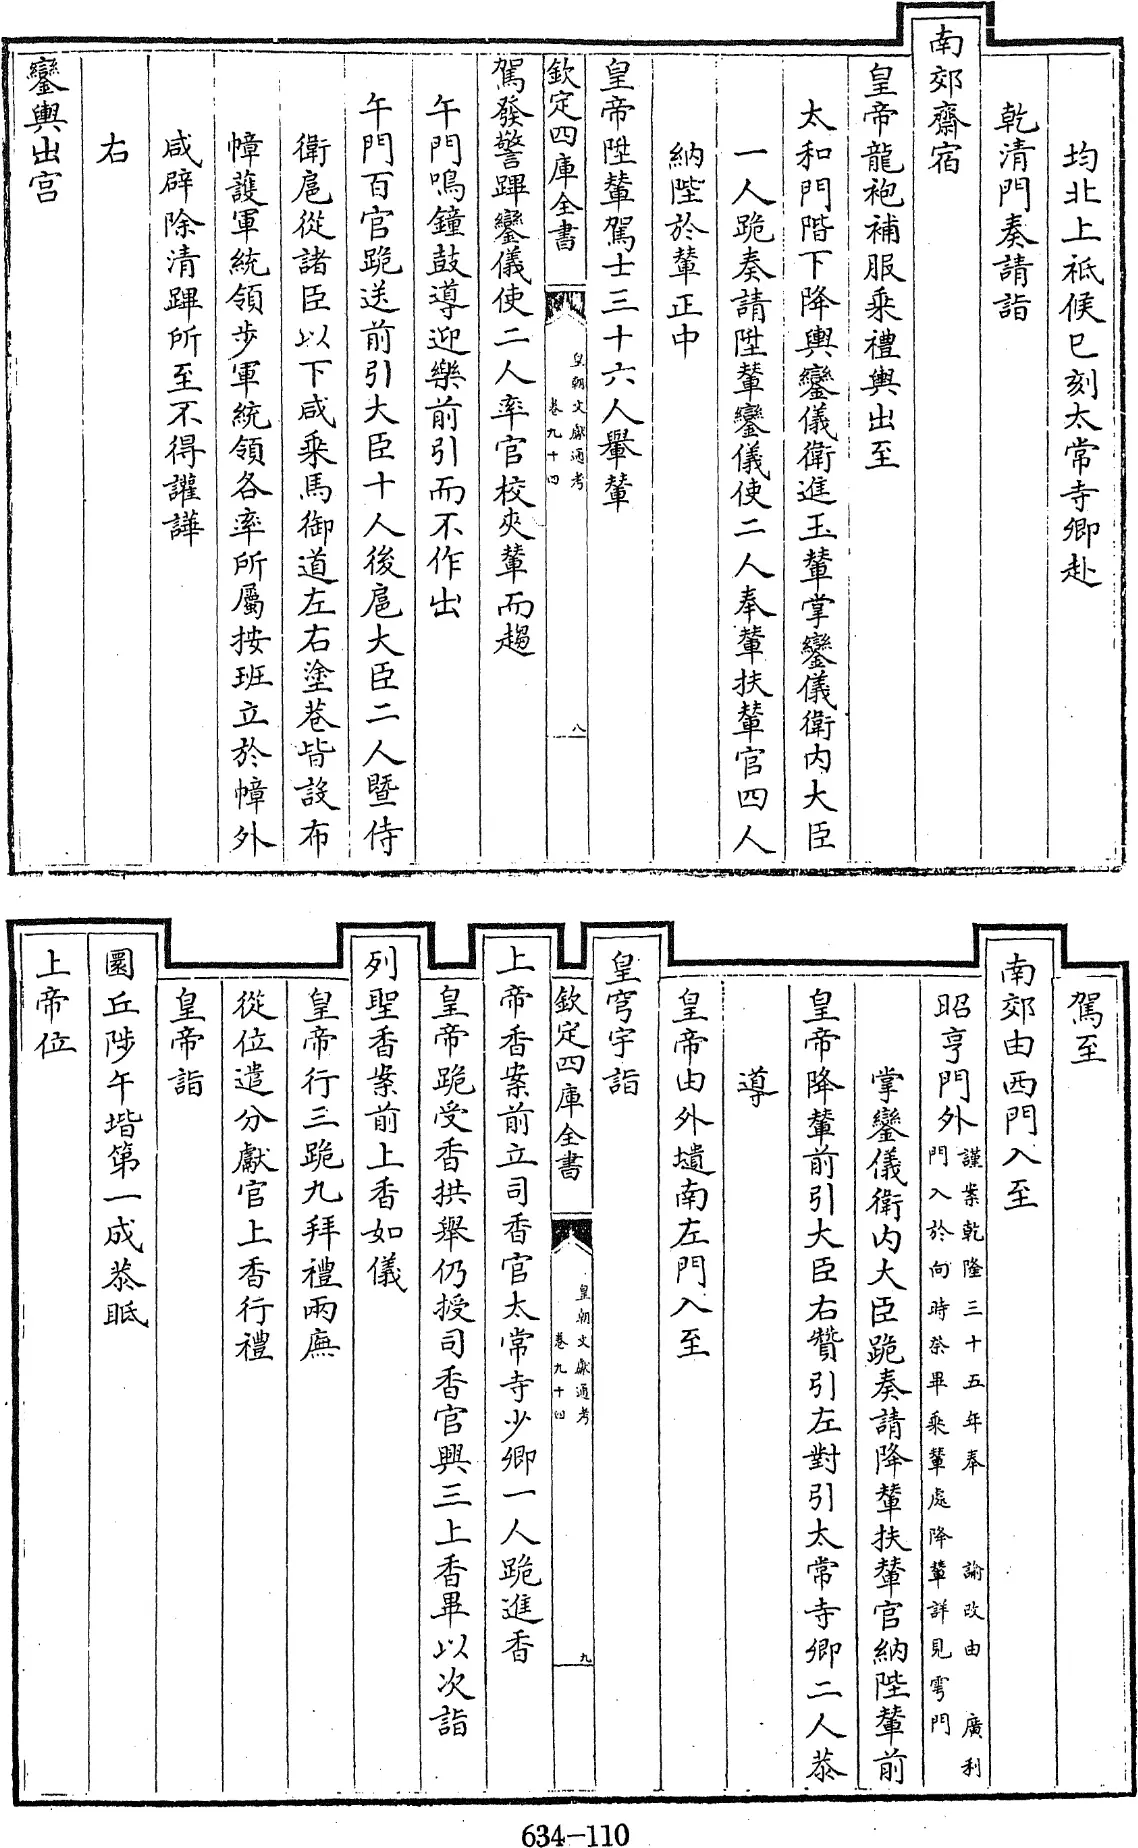 均北上祗候巳刻太常寺卿赴
乾清門奏請詣
南郊齋宿
皇帝龍袍補服乘禮輿出至
太和門階下降輿鑾儀衛進玉輦掌鑾儀衛内大臣
一人跪奏請陞輦鑾儀使二人奉輦扶輦官四人
納陛於輦正中
皇帝陞輦駕士三十六人舉輦
欽定四庫全書
皇朝文獻通考
卷九十四
八
駕發警蹕鑾儀使二人率官校夾輦而趨
午門鳴鐘鼓導迎樂前引而不作出
午門百官跪送前引大臣十人後扈大臣二人暨侍
衛扈從諸臣以下咸乘馬御道左右塗巷皆設布
幛護軍統領步軍統領各率所屬按班立於幛外
咸辟除清蹕所至不得讙譁
右
鑾輿出宫
駕至
南郊由西門入至
昭亨門外
謹案乾隆三十五年奉 諭改由 廣利
門入於向時祭畢乘輦處降輦詳見雩門
掌鑾儀衛内大臣跪奏請降輦扶輦官納陛輦前
皇帝降輦前引大臣右贊引左對引太常寺卿二人恭
導
皇帝由外壝南左門入至
皇穹宇詣
欽定四庫全書
皇朝文獻通考
卷九十四
九
上帝香案前立司香官太常寺少卿一人跪進香
皇帝跪受香拱舉仍授司香官興三上香畢以次詣
列聖香案前上香如儀
皇帝行三跪九拜禮兩廡
從位遣分獻官上香行禮
皇帝詣
圜丘陟午堦第一成恭眡
上帝位
634-110